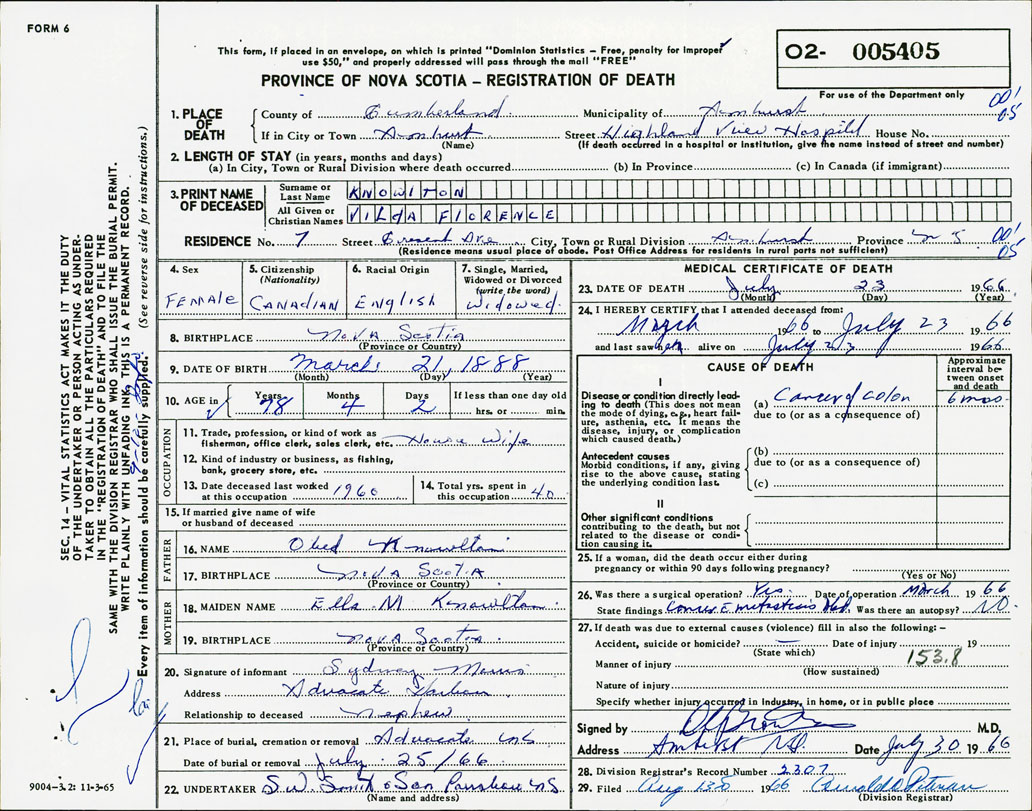 FORM 6
This form, if placed in an envelope, on which is printed "Dominion Statistics – Free, penalty for improper
use $50," and properly addressed will pass through the mail "FREE"
O2- 005405
PROVINCE OF NOVA SCOTIA – REGISTRATION OF DEATH
For use of the Department only
1. PLACE OF DEATH
County of Cumberland Municipality of Amhurst
If in City or Town Amhurst Street Highland View Hospital House No.
(Name) (If death occurred in a hospital or institution, give the name instead of street and number)
2. LENGTH OF STAY (in years, months and days)
(a) In City, Town or Rural Division where death occurred (b) In Province (c) In Canada (if immigrant)
3. PRINT NAME OF DECEASED
Surname or Last Name KNOWlTON
All Given or Christian Names VILdA FlORENCE
RESIDENCE No. 7 Street Cresent Ave City, Town or Rural Division Amhurst Province N S
(Residence means usual place of abode. Post Office Address for residents in rural parts not sufficient)
001
05
001
05
4. Sex
FEMAlE
5. Citizenship
(Nationality)
CANADIAN
6. Racial Origin
English
7. Single, Married,
Widowed or Divorced
(write the word)
Widowed.
8. BIRTHPLACE NOVA Scotia
(Province or Country)
9. DATE OF BIRTH March 21, 1888
(Month) (Day) (Year)
10. AGE in
Years 78 Months 4 Days 2 If less than one day old
hrs. or min.
OCCUPATION
11. Trade, profession, or kind of work as
fisherman, office clerk, sales clerk, etc. House Wife
12. Kind of industry or business, as fishing,
bank, grocery store, etc.
13. Date deceased last worked
at this occupation 1966
14. Total yrs. spent in
this occupation 40
15. If married give name of wife
or husband of deceased
FATHER
16. NAME Obed Knowlton
17. BIRTHPLACE NOVA Scotia
(Province or Country)
MOTHER
18. MAIDEN NAME Ella M Knowlton
19. BIRTHPLACE Nova Scotia
(Province or Country)
20. Signature of informant Sydney
Address Advocate Harbour
Relationship to deceased Nephew
21. Place of burial, cremation or removal Advocate NS
Date of burial or removal July 25/66
22. UNDERTAKER S.W. Smith & Son Parrsboro NS
(Name and address)
MEDICAL CERTIFICATE OF DEATH
23. DATE OF DEATH July 23 1966
(Month) (Day) (Year)
24. I HEREBY CERTIFY that I attended deceased from:
March 1966 to July 23 1966
and last saw her alive on July 23 1966
CAUSE OF DEATH
Approximate
interval be-
tween onset
and death
I
Disease or condition directly lead-
ing to death (This does not mean
the mode of dying, e.g., heart fail-
ure, asthenia, etc. It means the
disease, injury, or complication
which caused death.)
(a) Cancer of colon 6 mos
due to (or as a consequence of)
Antecedent causes
Morbid conditions, if any, giving
rise to the above cause, stating
the underlying condition last.
(b)
due to (or as a consequence of)
(c)
II
Other significant conditions
contributing to the death, but not
related to the disease or condi-
tion causing it.
25. If a woman, did the death occur either during
pregnancy or within 90 days following pregnancy?
(Yes or No)
26. Was there a surgical operation? Yes. Date of operation March 1966
State findings Was there an autopsy? NO.
27. If death was due to external causes (violence) fill in also the following: –
Accident, suicide or homicide? Date of injury 19
(State which)
Manner of injury 153.8
(How sustained)
Nature of injury
Specify whether injury occurred in Industry, in home, or in public place
Signed by M.D,
Address Amherst N.S. Date July 30 1966
28. Division Registrar's Record Number 2307
29. Filed Aug 1966
(Division Registrar)
SEC. 14 – VITAL STATISTICS ACT MAKES IT THE DUTY
OF THE UNDERTAKER OR PERSON ACTING AS UNDER-
TAKER TO OBTAIN ALL THE PARTICULARS REQUIRED
IN THE "REGISTRATION OF DEATH" AND TO FILE THE
SAME WITH THE DIVISION REGISTRAR WHO SHALL ISSUE THE BURIAL PERMIT.
WRITE PLAINLY WITH UNFADING INK, THIS IS A PERMANENT RECORD.
Every item of information should be carefully supplied. (See reverse side for instructions.)
9004-3.2: 11-3-65